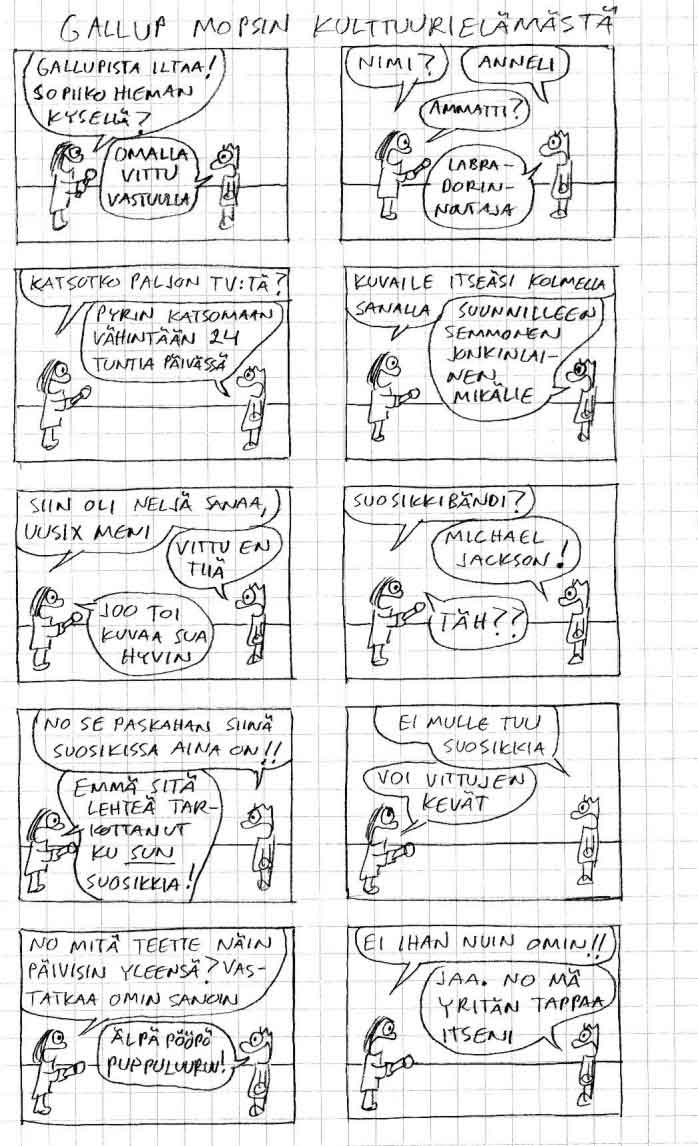 GALLUP MOPSIN KULTTUURIELÄMÄSTÄ
GALLUPISTA ILTAA!
SOPIIKO HIEMAN
KYSELLÄ?
OMALLA
VITTU
VASTUULLA
NIMI?
ANNELI
AMMATTI?
LABRA-
DORIN-
NOUTAJA
KATSOTKO PALJON TV:TÄ?
PYRIN KATSOMAAN
VÄHINTÄÄN 24
TUNTIA PÄIVÄSSÄ
KUVAILE ITSEÄSI KOLMELLA
SANALLA
SUUNNILLEEN
SEMMONEN
JONKINLAI-
NEN
MIKÄLIE
SIIN OLI NELJÄ SANAA,
UUSIX MENI
VITTU EN
TIIÄ
JOO TOI
KUVAA SUA
HYVIN
SUOSIKKIBÄNDI?
MICHAEL
JACKSON!
TÄH??
NO SE PASKAHAN SIINÄ
SUOSIKISSA AINA ON!!
EMMÄ SITÄ
LEHTEÄ TAR-
KOTTANUT
KU SUN
SUOSIKKIA!
EI MULLE TUU
SUOSIKKIA
VOI VITTUJEN
KEVÄT
NO MITÄ TEETTE NÄIN
PÄIVISIN YLEENSÄ? VAS-
TATKAA OMIN SANOIN
ÄLPÄ PÖÖPÖ
PUPPULUURIN!
EI IHAN NUIN OMIN!!
JAA. NO MÄ
YRITÄN TAPPAA
ITSENI